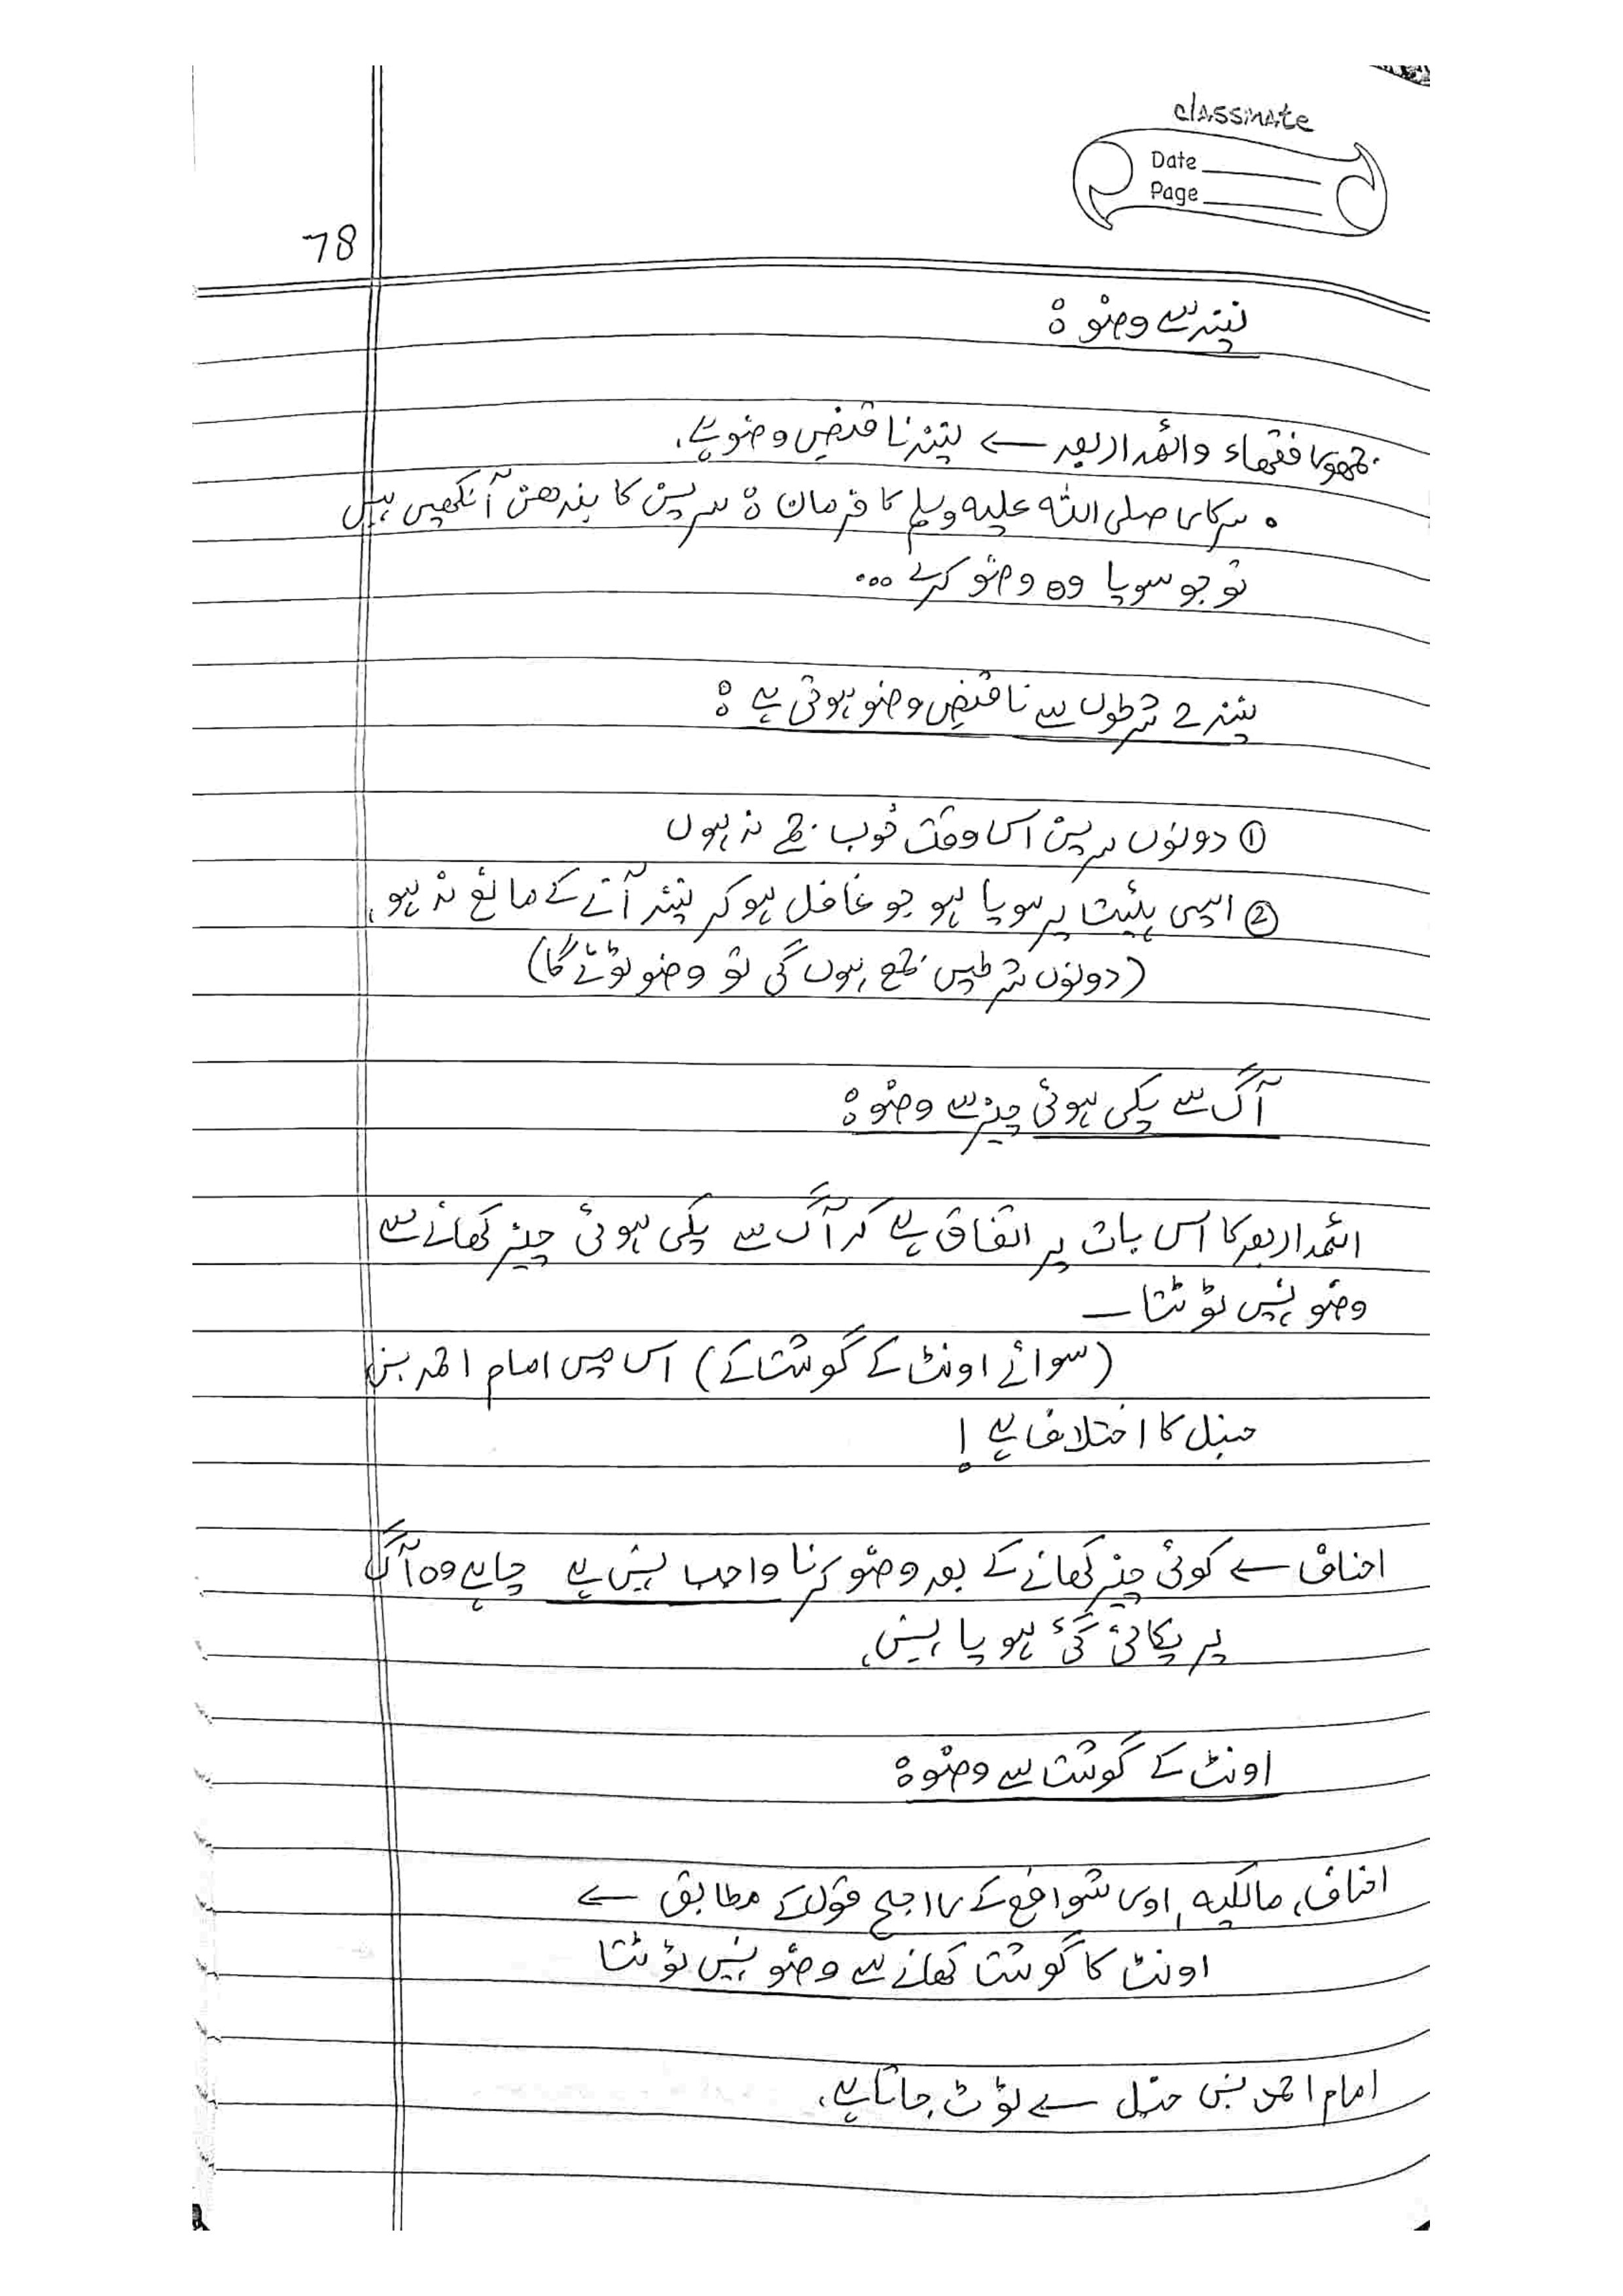 classmate
Date
Page
78
نیند سے وضو :
جمہور فقہاء وائمہ اربعہ ← نیند ناقض وضو ہے۔
• سرکار صلی اللہ علیہ وسلم کا فرمان : سرین کا بندھن آنکھیں ہیں
تو جو سویا وہ وضو کرے ...
نیند 2 شرطوں سے ناقض وضو ہوتی ہے :
① دونوں سرین اس وقت خوب جمے نہ ہوں
② ایسی ہئیت پر سویا ہو جو غافل ہو کر نیند آنے کے مانع نہ ہو۔
(دونوں شرطیں جمع ہوں گی تو وضو ٹوٹے گا)
آگ سے پکی ہوئی چیز سے وضو :
ائمہ اربعہ کا اس بات پر اتفاق ہے کہ آگ سے پکی ہوئی چیز کھانے سے
وضو نہیں ٹوٹتا ــ
(سوائے اونٹ کے گوشت کے) اس میں امام احمد بن
حنبل کا اختلاف ہے !
احناف ← کوئی چیز کھانے کے بعد وضو کرنا واجب نہیں ہے چاہے وہ آگ
پر پکائی گئ ہو یا نہیں،
اونٹ کے گوشت سے وضو :
احناف، مالکیہ، اور شوافع کے راجح قول کے مطابق ←
اونٹ کا گوشت کھانے سے وضو نہیں ٹوٹتا
امام احمد بن حنبل ← ٹوٹ جاتا ہے،